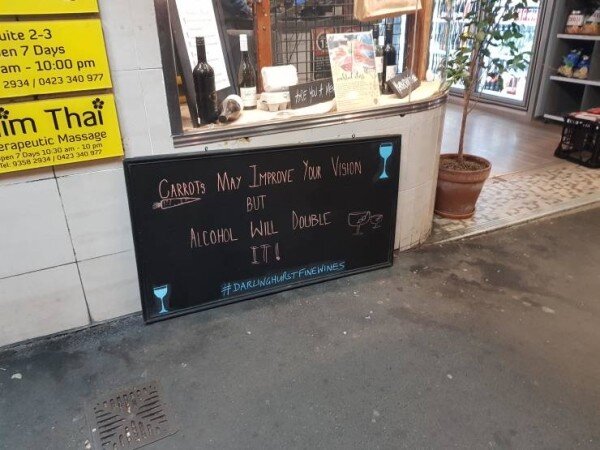 uite 2-3
en 7 Days
am - 10:00 pm
2934 / 0423 340 977
im Thai
erapeutic Massage
pen 7 Days 10:30 am - 10 pm
Tel: 9358 2934 / 0423 340 977
CARROTS MAY IMPROVE YOUR VISION
BUT
ALCOHOL WILL DOUBLE
IT!
#DARLINGHURSTFINEWINES